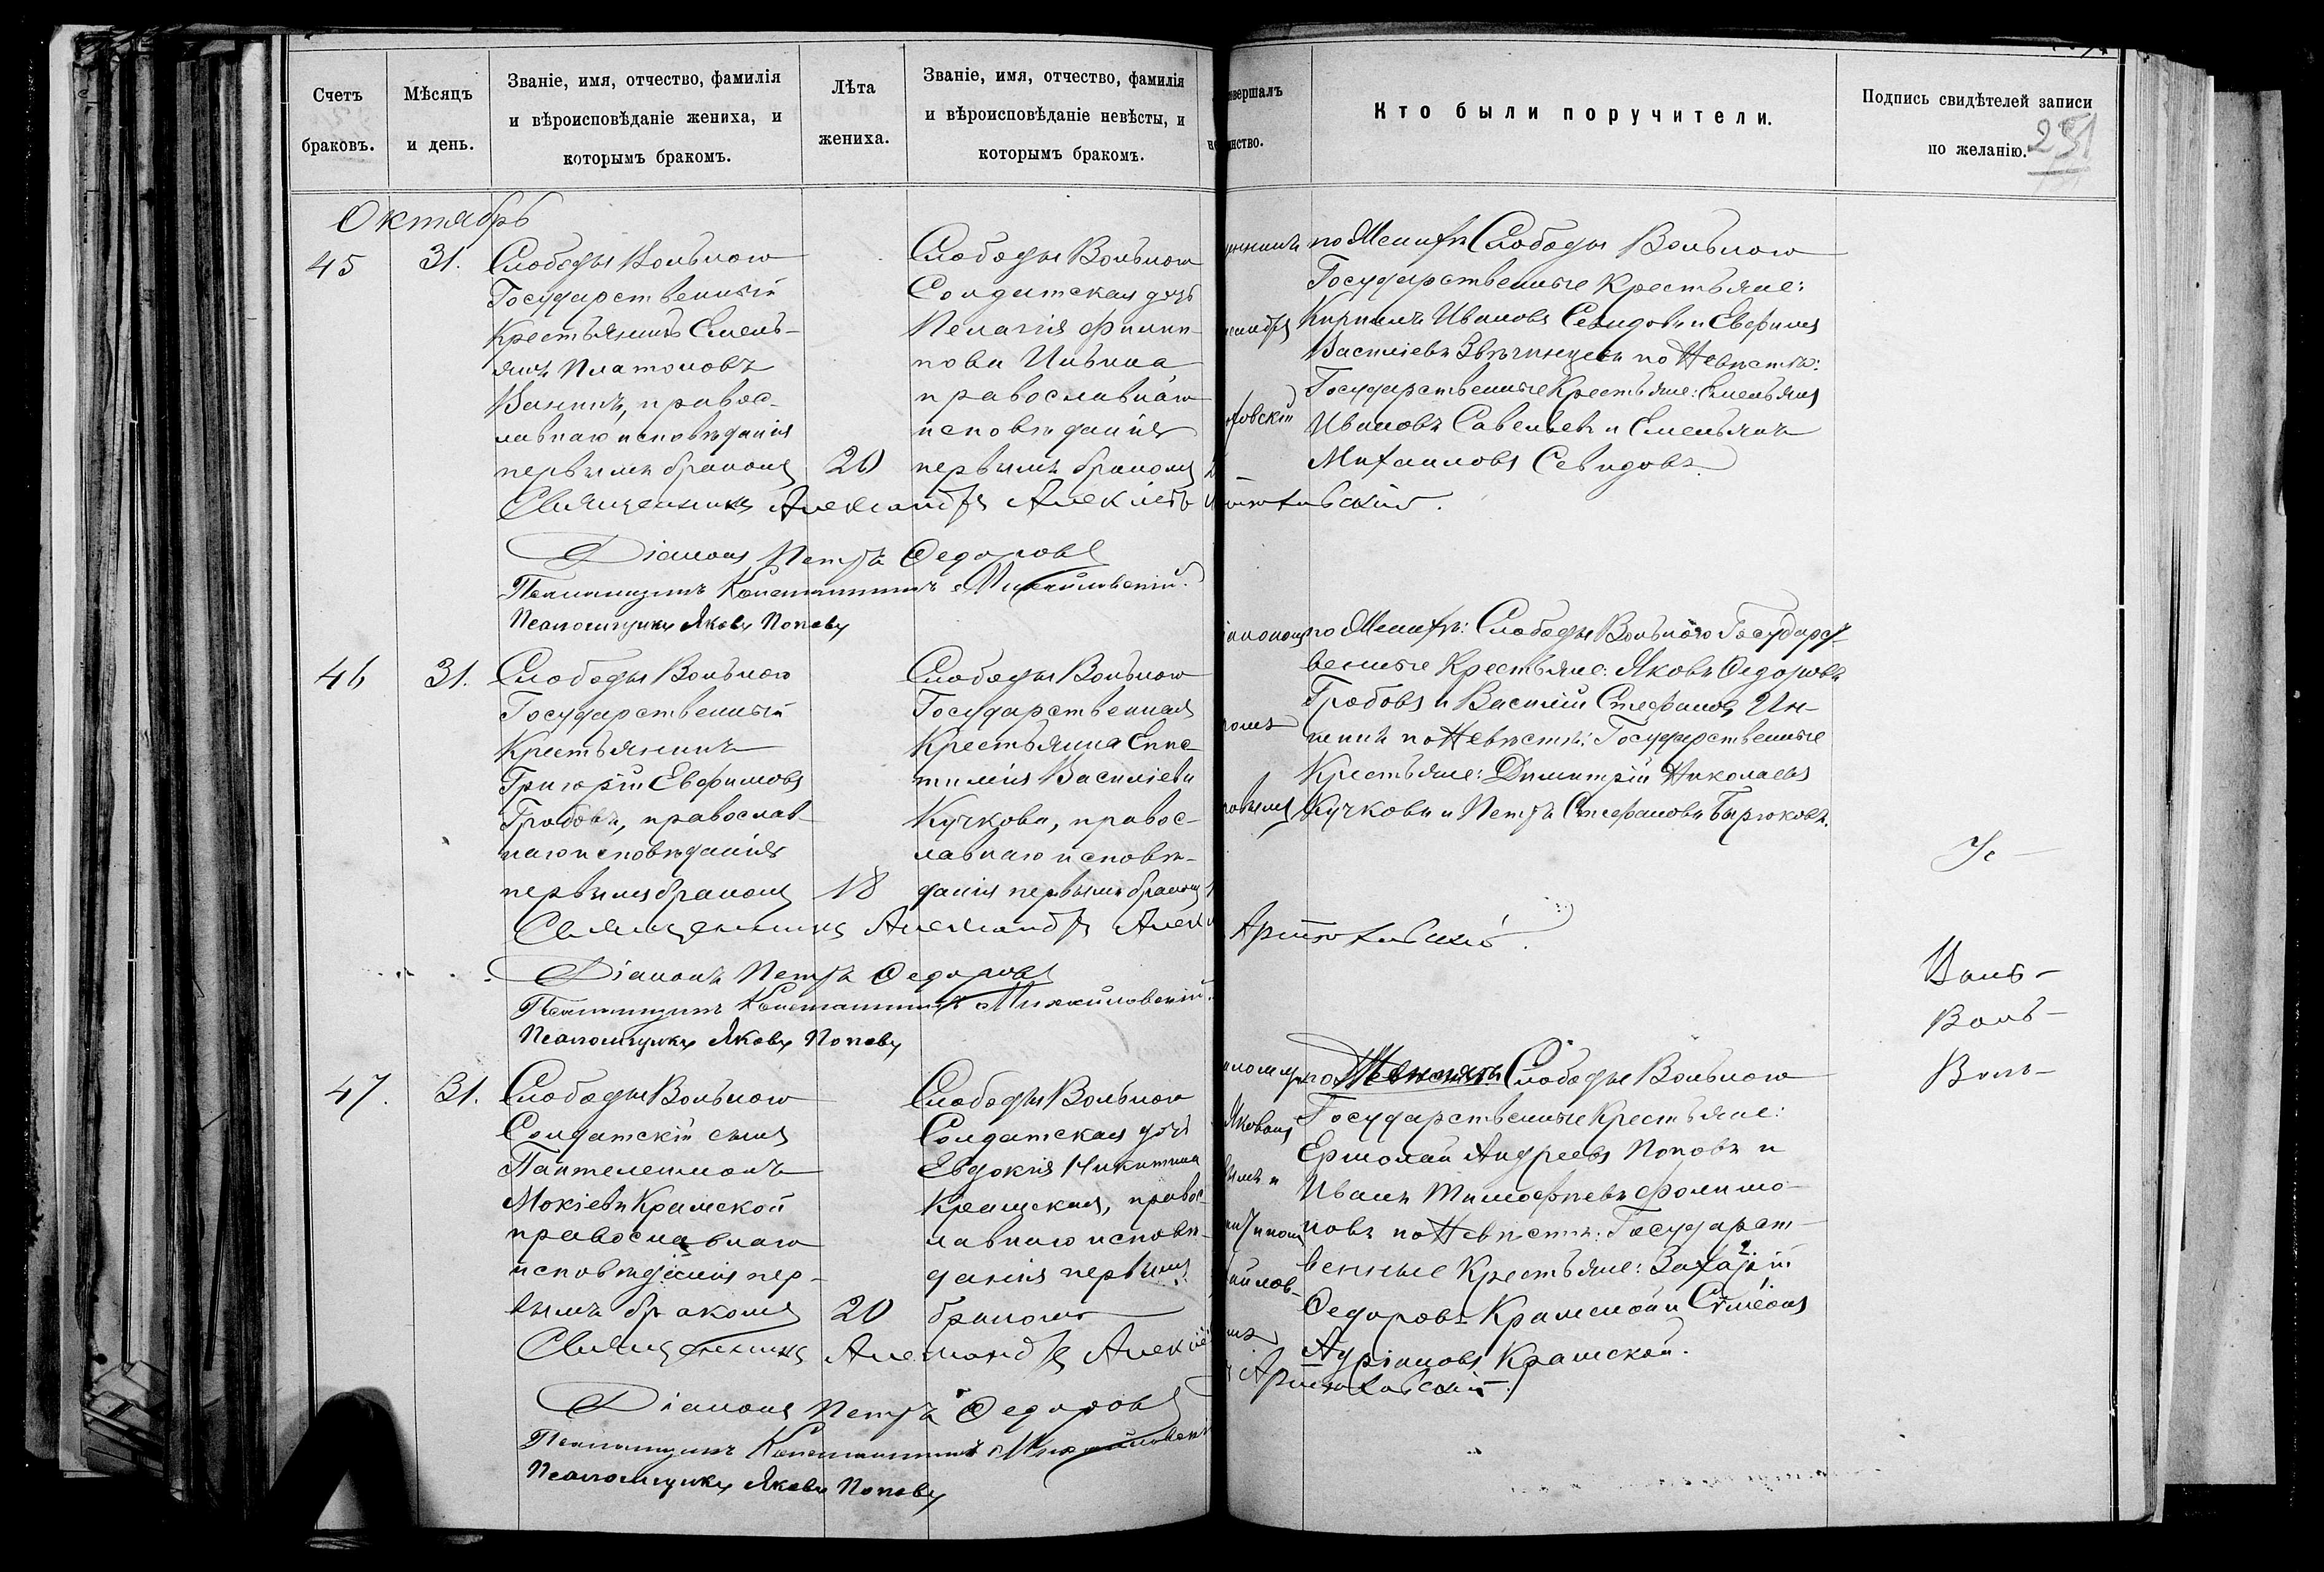 Счетъ
браковъ.
Мѣсяцъ
и день.
Званіе, имя, отчество, фамилія
и вѣроисповѣданіе жениха, и
которымъ бракомъ.
Лѣта
жениха.
Званіе, имя, отчество, фамилія
и вѣроисповѣданіе невѣсты, и
которымъ бракомъ.
Кто были поручители.
Подпись свидѣтелей записи
по желанію.
251
Октябрь
45
31.
Слободы Вольнаго
Государственный
Крестьянинъ Емель-
янъ Платоновъ
православ-
наго исповѣданія
первымъ бракомъ
20
Слободы Вольнаго
Солдатская дочь
Пелагія Филип-
пова Ильина
православнаго
исповѣданія
первымъ бракомъ
по Женихѣ Слободы Вольнаго
Государственные Крестьяне:
Кириллъ Ивановъ Севидовъ и Евфимъ
Василіевъ по Невѣстѣ:
Государственные Крестьяне: Емельянъ
Ивановъ Савельевъ и Емельянъ
Михаиловъ Севидовъ.
Священникъ Александръ Алексіевъ
Діаконъ Петръ Ѳедоровъ
Псаломщикъ Константинъ Михайловскій.
Псаломщикъ Яковъ Поповъ
46
31.
Слободы Вольнаго
Государственный
Крестьянинъ
Григорій Евфимовъ
Гробовъ, православ-
наго исповѣданія
первымъ бракомъ
18
Слободы Вольнаго
Государственная
Крестьянка Епис-
тимія Василіева
Кучкова, правос-
лавнаго исповѣ-
данія первымъ бракомъ
по Женихѣ: Слободы Вольнаго Государст-
венные Крестьяне: Яковъ Ѳедоровъ
Гробовъ и Василій Стефановъ
по Невѣстѣ: Государственные
Крестьяне: Димитрій Николаевъ
Кучковъ и Петръ Стефановъ Бирюковъ.
Священникъ Александръ
Діаконъ Петръ Ѳедоровъ
Псаломщикъ Константинъ Михайловскій.
Псаломщикъ Яковъ Поповъ
47.
31.
Слободы Вольнаго
Солдатскій сынъ
Пантелеимонъ
Мокіевъ Крамской
православнаго
исповѣданія пер-
вымъ бракомъ
20
Слободы Вольнаго
Солдатская дочь
Евдокія Никитина
правос-
лавнаго исповѣ-
данія первымъ
бракомъ
Слободы Вольнаго
Государственные Крестьяне:
Ермолай Андреевъ Поповъ и
Иванъ Тимофеевъ Филимо-
новъ по Невѣстѣ: Государст-
венные Крестьяне: Захарій
Ѳедоровъ Крамской и Сѵмеонъ
Адріановъ Крамской.
Священникъ Александръ
Діаконъ Петръ Ѳедоровъ
Псаломщикъ Константинъ
Псаломщикъ Яковъ Поповъ